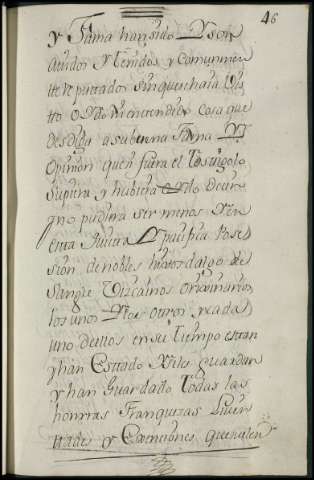 46
y Fama han sido y Son
auidos y tenidos y comunmen
te Reputados sin que se haia Vis
to o oydo ni entendido cosa que
desdiga a su buena Fama y
Opinion que si fuera el Testigo lo
supiera y hubiera oydo Decir y
no pudiera ser menos y en
esta quieta y pacifica Pose
sion de nobles hixos dalgo de
Sangre Vizcainos originarios
los unos y los otros y cada
uno de ellos en su tiempo estan
y han Estado y se les guardan
y han Guardado Todas las
honrras Franquezas Liver
tades y Esenciones que suelen